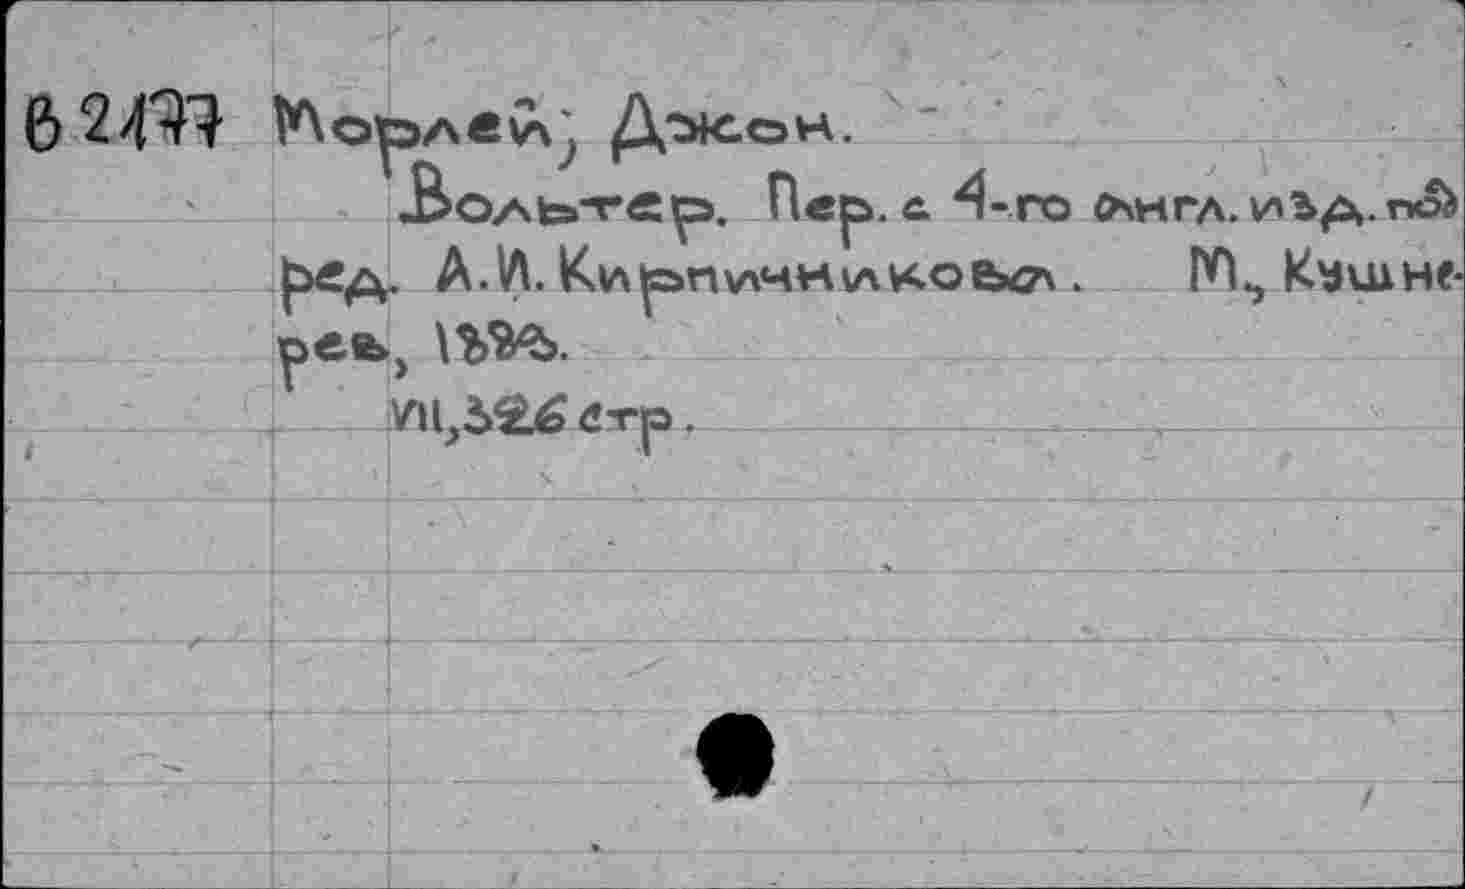 Морлей, Джон.
Вольтер. Пер. с 4-го англ. изд. под
ред. А.И. Кирпичникова. М., Кушне-
рев,
VII, 326 стр.